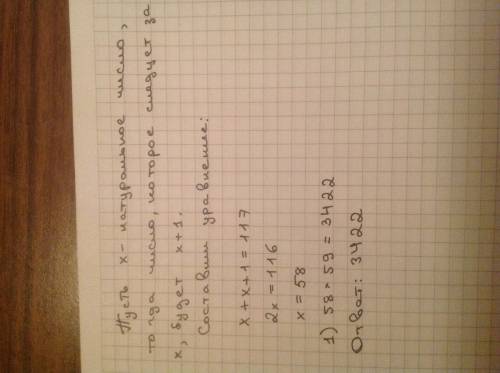 Пусть x - натуральное число,
тогда число, которое следует за
x, будет x+1.
Составим уравнение:
x+x+1=117
2x=116
x=58
1) 58·59=3422
Ответ: 3422